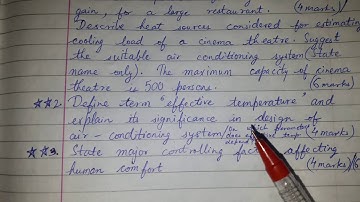 gain, for a large restaurant. (4 marks)
"Describe heat sources considered for estimating
cooling load of a cinema theatre. Suggest
the suitable air conditioning system (State
name only). The maximum capacity of cinema
theatre is 500 persons. (6 marks)
☆☆2. Define term "effective temperature" and
explain its significance in design of
air-conditioning system / on which parameter
does effective temp depend (4 marks)
☆☆3. State major controlling factors affecting
human comfort (4 marks)/6